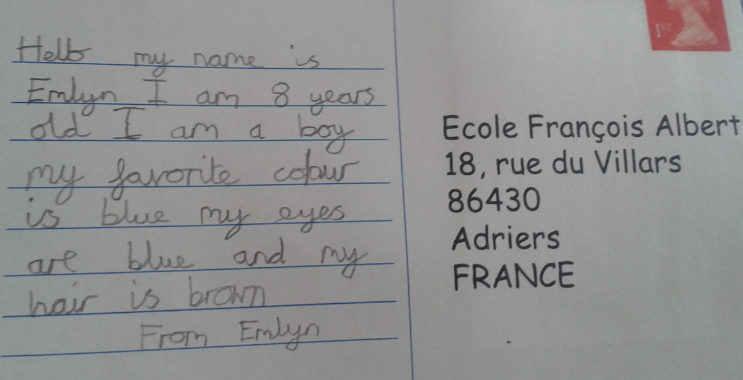 Hello my name is
Emlyn I am 8 years
old I am a boy
my favorite colour
is blue my eyes
are blue and my
hair is brown
From Emlyn
1ST
Ecole François Albert
18, rue du Villars
86430
Adriers
FRANCE